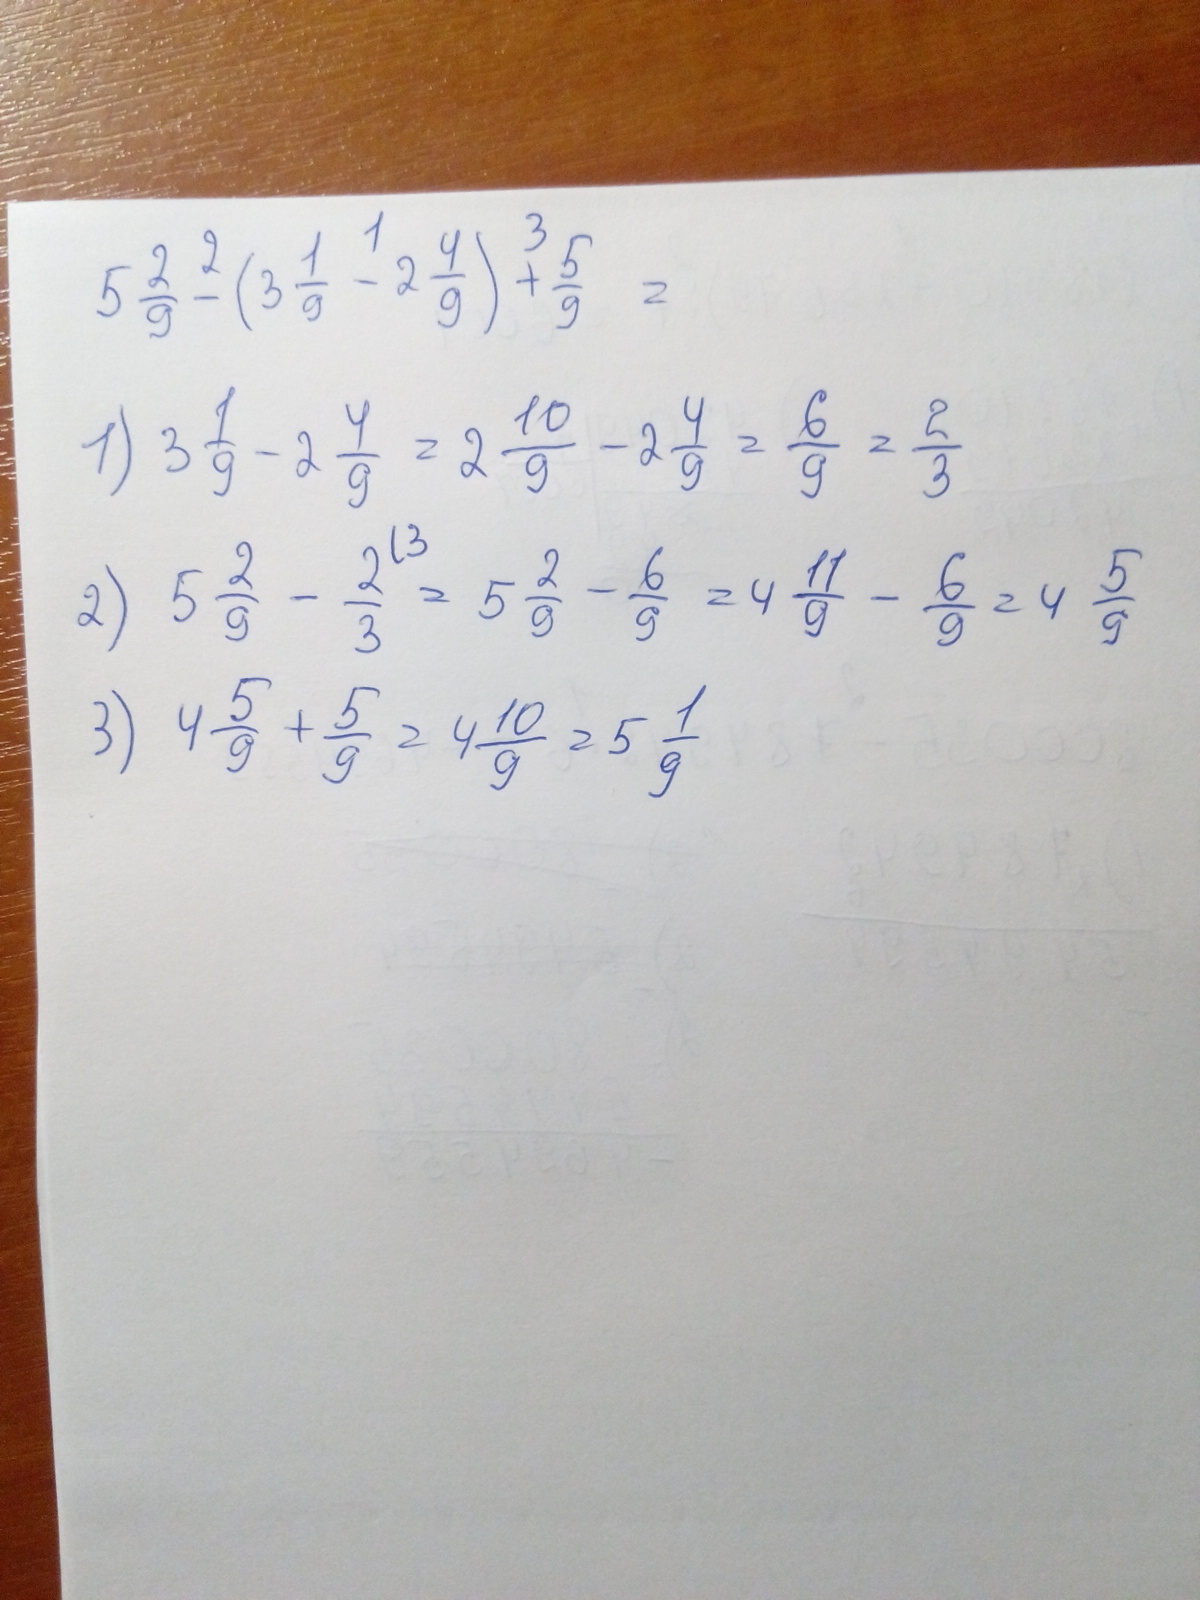 5 2/9 - (3 1/9 - 2 4/9) + 5/9 =
1) 3 1/9 - 2 4/9 = 2 10/9 - 2 4/9 = 6/9 = 2/3
2) 5 2/9 - 2/3 (3 = 5 2/9 - 6/9 = 4 11/9 - 6/9 = 4 5/9
3) 4 5/9 + 5/9 = 4 10/9 = 5 1/9